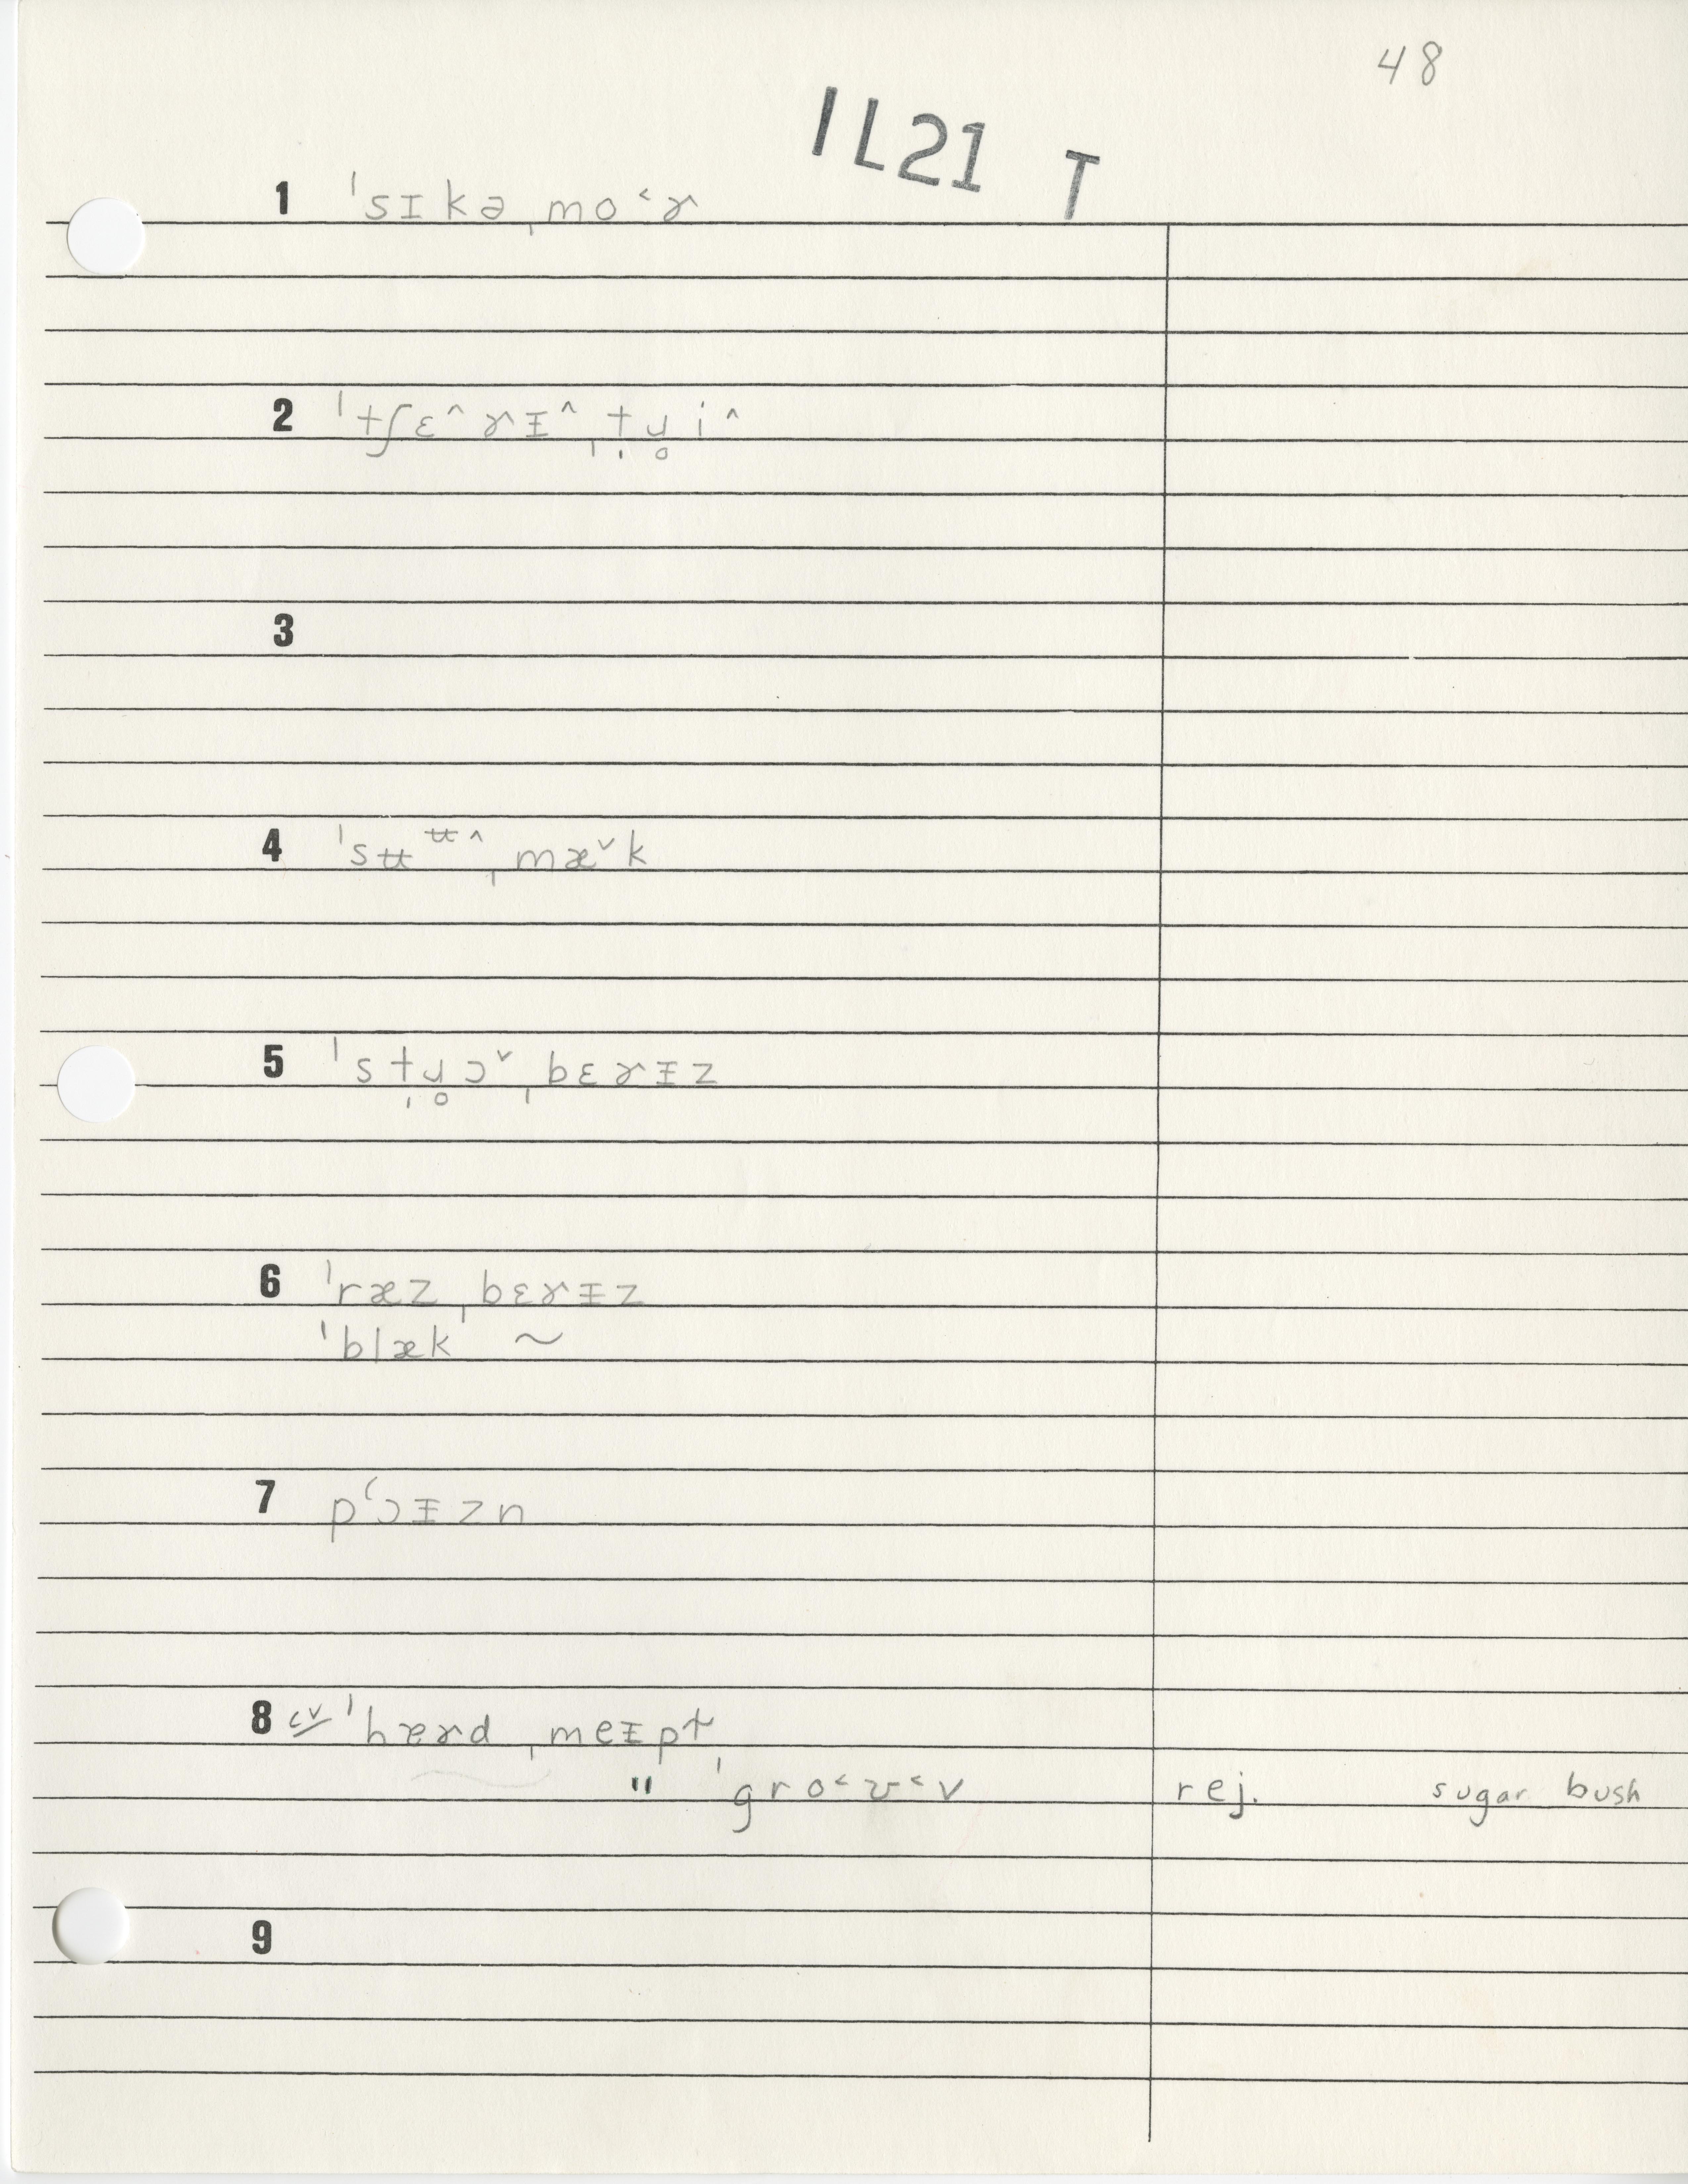 48
IL21 T
1 ˈsɪkəˌmo˂ɚ
2 ˈtʃɛ^ɚɪ^ˌt̩ɹ̥i^
3
4 ˈsʉ^ʉ^ˌmæ˅k
5 ˈst̩ɹ̥ɔ˅ˌbɛɚɨz
6 ˈræzˌbɛɚɨz
ˈblæk ~
7 pʻɔɨzn
8 cv ˈhɐɚdˌmeɨpɫ
" ˈgro˂ʊ˂v rej. sugar bush
9